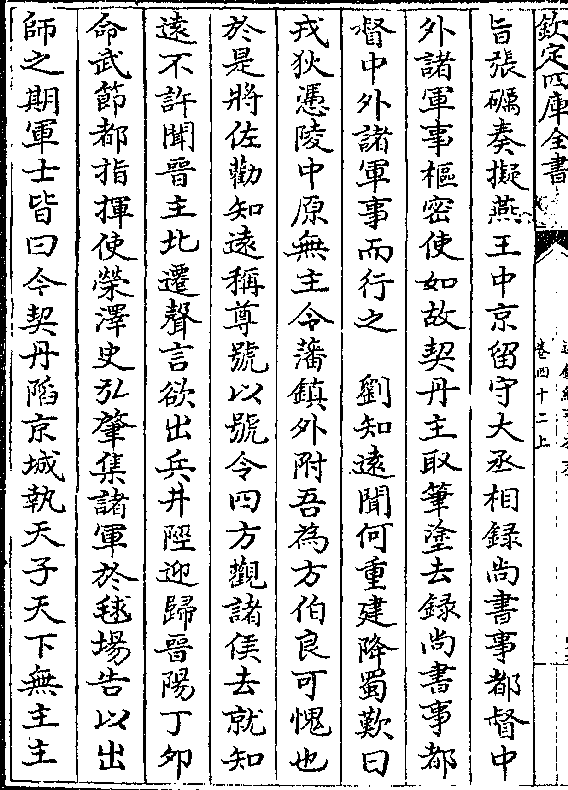 欽定四庫全書
卷四十二上
旨張礪奏擬燕王中京留守大丞相録尚書事都督中
外諸軍事樞密使如故契丹主取筆塗去録尚書事都
督中外諸軍事而行之　劉知遠聞何重建降蜀歎曰
戎狄憑陵中原無主令藩鎮外附吾為方伯良可愧也
於是將佐勸知遠稱尊號以號令四方觀諸侯去就知
遠不許聞晉主北遷聲言欲出兵井陘迎歸晉陽丁卯
命武節都指揮使榮澤史弘肇集諸軍於毬場告以出
師之期軍士皆曰今契丹陷京城執天子天下無主主